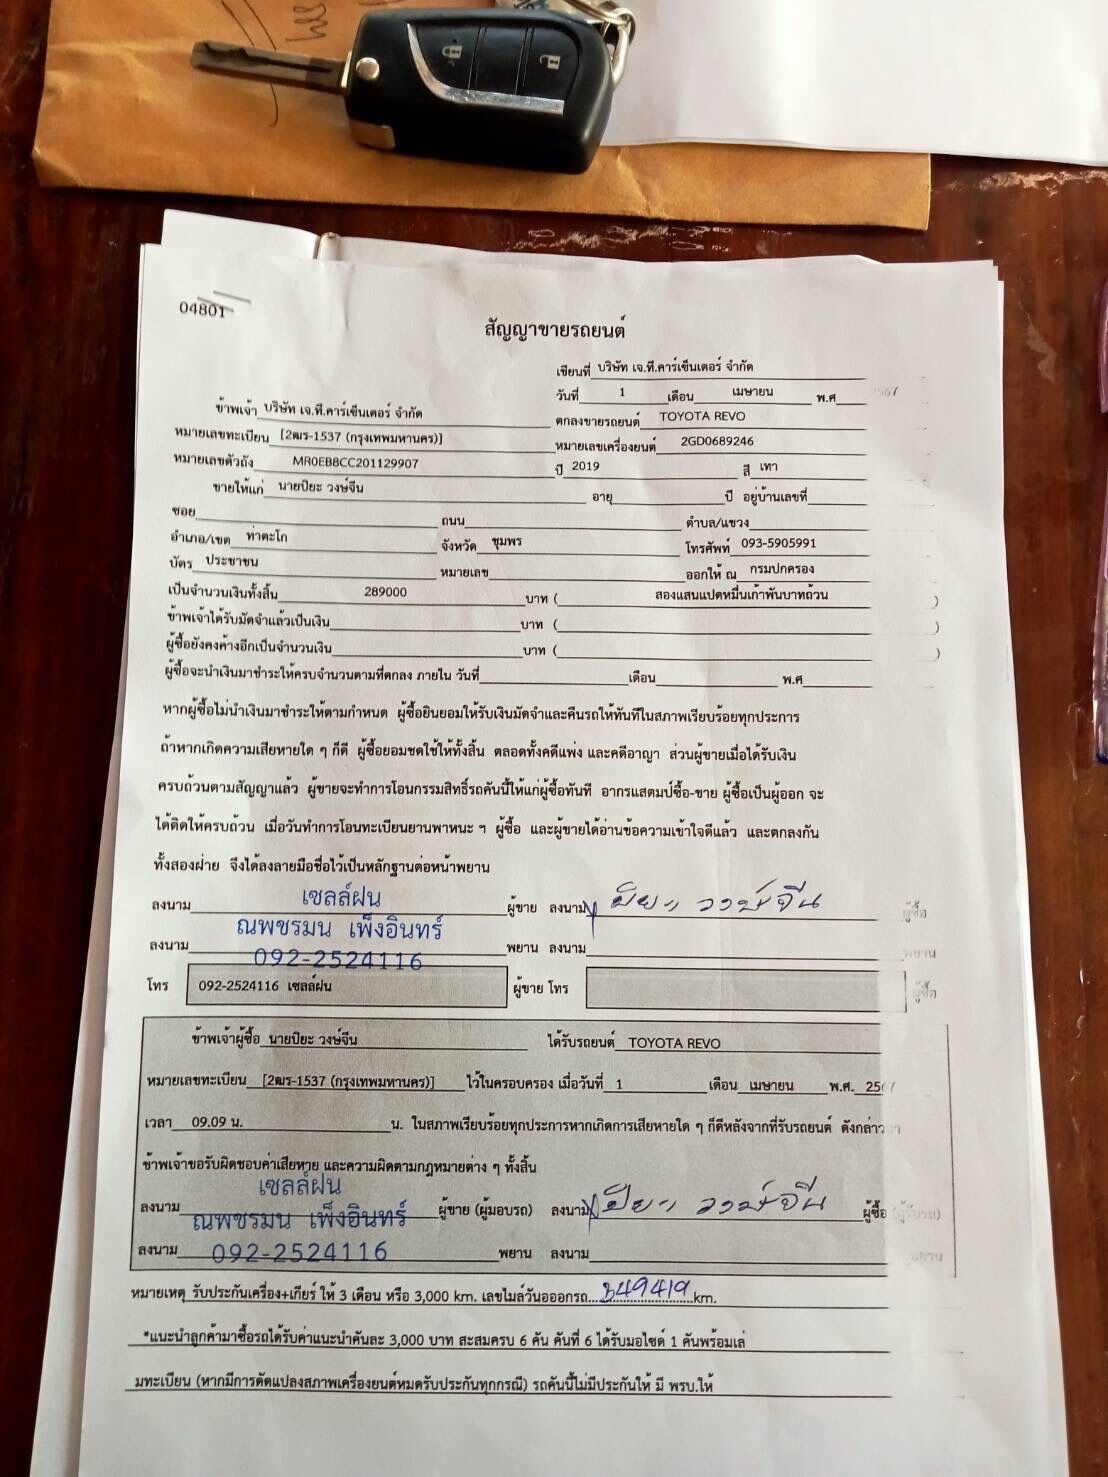 04801
สัญญาขายรถยนต์
เขียนที่ บริษัท เจ.ที.คาร์เซ็นเตอร์ จำกัด
วันที่ 1 เดือน เมษายน พ.ศ 2567
ข้าพเจ้า บริษัท เจ.ที.คาร์เซ็นเตอร์ จำกัด ตกลงขายรถยนต์ TOYOTA REVO
หมายเลขทะเบียน [2ฒร-1537 (กรุงเทพมหานคร)] หมายเลขเครื่องยนต์ 2GD0689246
หมายเลขตัวถัง MR0EB8CC201129907 ปี 2019 สี เทา
ขายให้แก่ นายปิยะ วงษ์จีน อายุ ปี อยู่บ้านเลขที่
ซอย ถนน ตำบล/แขวง
อำเภอ/เขต ท่าตะโก จังหวัด ชุมพร โทรศัพท์ 093-5905991
บัตร ประชาชน หมายเลข ออกให้ ณ กรมปกครอง
เป็นจำนวนเงินทั้งสิ้น 289000 บาท ( สองแสนแปดหมื่นเก้าพันบาทถ้วน )
ข้าพเจ้าได้รับมัดจำแล้วเป็นเงิน บาท ( )
ผู้ซื้อยังคงค้างอีกเป็นจำนวนเงิน บาท ( )
ผู้ซื้อจะนำเงินมาชำระให้ครบจำนวนตามที่ตกลง ภายใน วันที่ เดือน พ.ศ
หากผู้ซื้อไม่นำเงินมาชำระให้ตามกำหนด ผู้ซื้อยินยอมให้รับเงินมัดจำและคืนรถให้ทันทีในสภาพเรียบร้อยทุกประการ
ถ้าหากเกิดความเสียหายใด ๆ ก็ดี ผู้ซื้อยอมชดใช้ให้ทั้งสิ้น ตลอดทั้งคดีแพ่ง และคดีอาญา ส่วนผู้ขายเมื่อได้รับเงิน
ครบถ้วนตามสัญญาแล้ว ผู้ขายจะทำการโอนกรรมสิทธิ์รถคันนี้ให้แก่ผู้ซื้อทันที อากรแสตมป์ซื้อ-ขาย ผู้ซื้อเป็นผู้ออก จะ
ได้ติดให้ครบถ้วน เมื่อวันทำการโอนทะเบียนยานพาหนะ ฯ ผู้ซื้อ และผู้ขายได้อ่านข้อความเข้าใจดีแล้ว และตกลงกัน
ทั้งสองฝ่าย จึงได้ลงลายมือชื่อไว้เป็นหลักฐานต่อหน้าพยาน
ลงนาม เซลล์ฝน ผู้ขาย ลงนาม ปิยะ วงษ์จีน ผู้ซื้อ
ณพชรมน เพ็งอินทร์
ลงนาม 092-2524116 พยาน ลงนาม พยาน
โทร 092-2524116 เซลล์ฝน ผู้ขาย โทร ผู้ซื้อ
ข้าพเจ้าผู้ซื้อ นายปิยะ วงษ์จีน ได้รับรถยนต์ TOYOTA REVO
หมายเลขทะเบียน [2ฒร-1537 (กรุงเทพมหานคร)] ไว้ในครอบครอง เมื่อวันที่ 1 เดือน เมษายน พ.ศ. 2567
เวลา 09.09 น. น. ในสภาพเรียบร้อยทุกประการหากเกิดการเสียหายใด ๆ ก็ดีหลังจากที่รับรถยนต์ ดังกล่าว
ข้าพเจ้าขอรับผิดชอบค่าเสียหาย และความผิดตามกฎหมายต่าง ๆ ทั้งสิ้น
เซลล์ฝน
ลงนาม ณพชรมน เพ็งอินทร์ ผู้ขาย (ผู้มอบรถ) ลงนาม ปิยะ วงษ์จีน ผู้ซื้อ (ผู้รับรถ)
ลงนาม 092-2524116 พยาน ลงนาม พยาน
หมายเหตุ รับประกันเครื่อง+เกียร์ ให้ 3 เดือน หรือ 3,000 km. เลขไมล์วันออกรถ 349419 km.
*แนะนำลูกค้ามาซื้อรถได้รับค่าแนะนำคันละ 3,000 บาท สะสมครบ 6 คัน คันที่ 6 ได้รับมอไซด์ 1 คันพร้อมเล่
มทะเบียน (หากมีการดัดแปลงสภาพเครื่องยนต์หมดรับประกันทุกกรณี) รถคันนี้ไม่มีประกันให้ มี พรบ.ให้